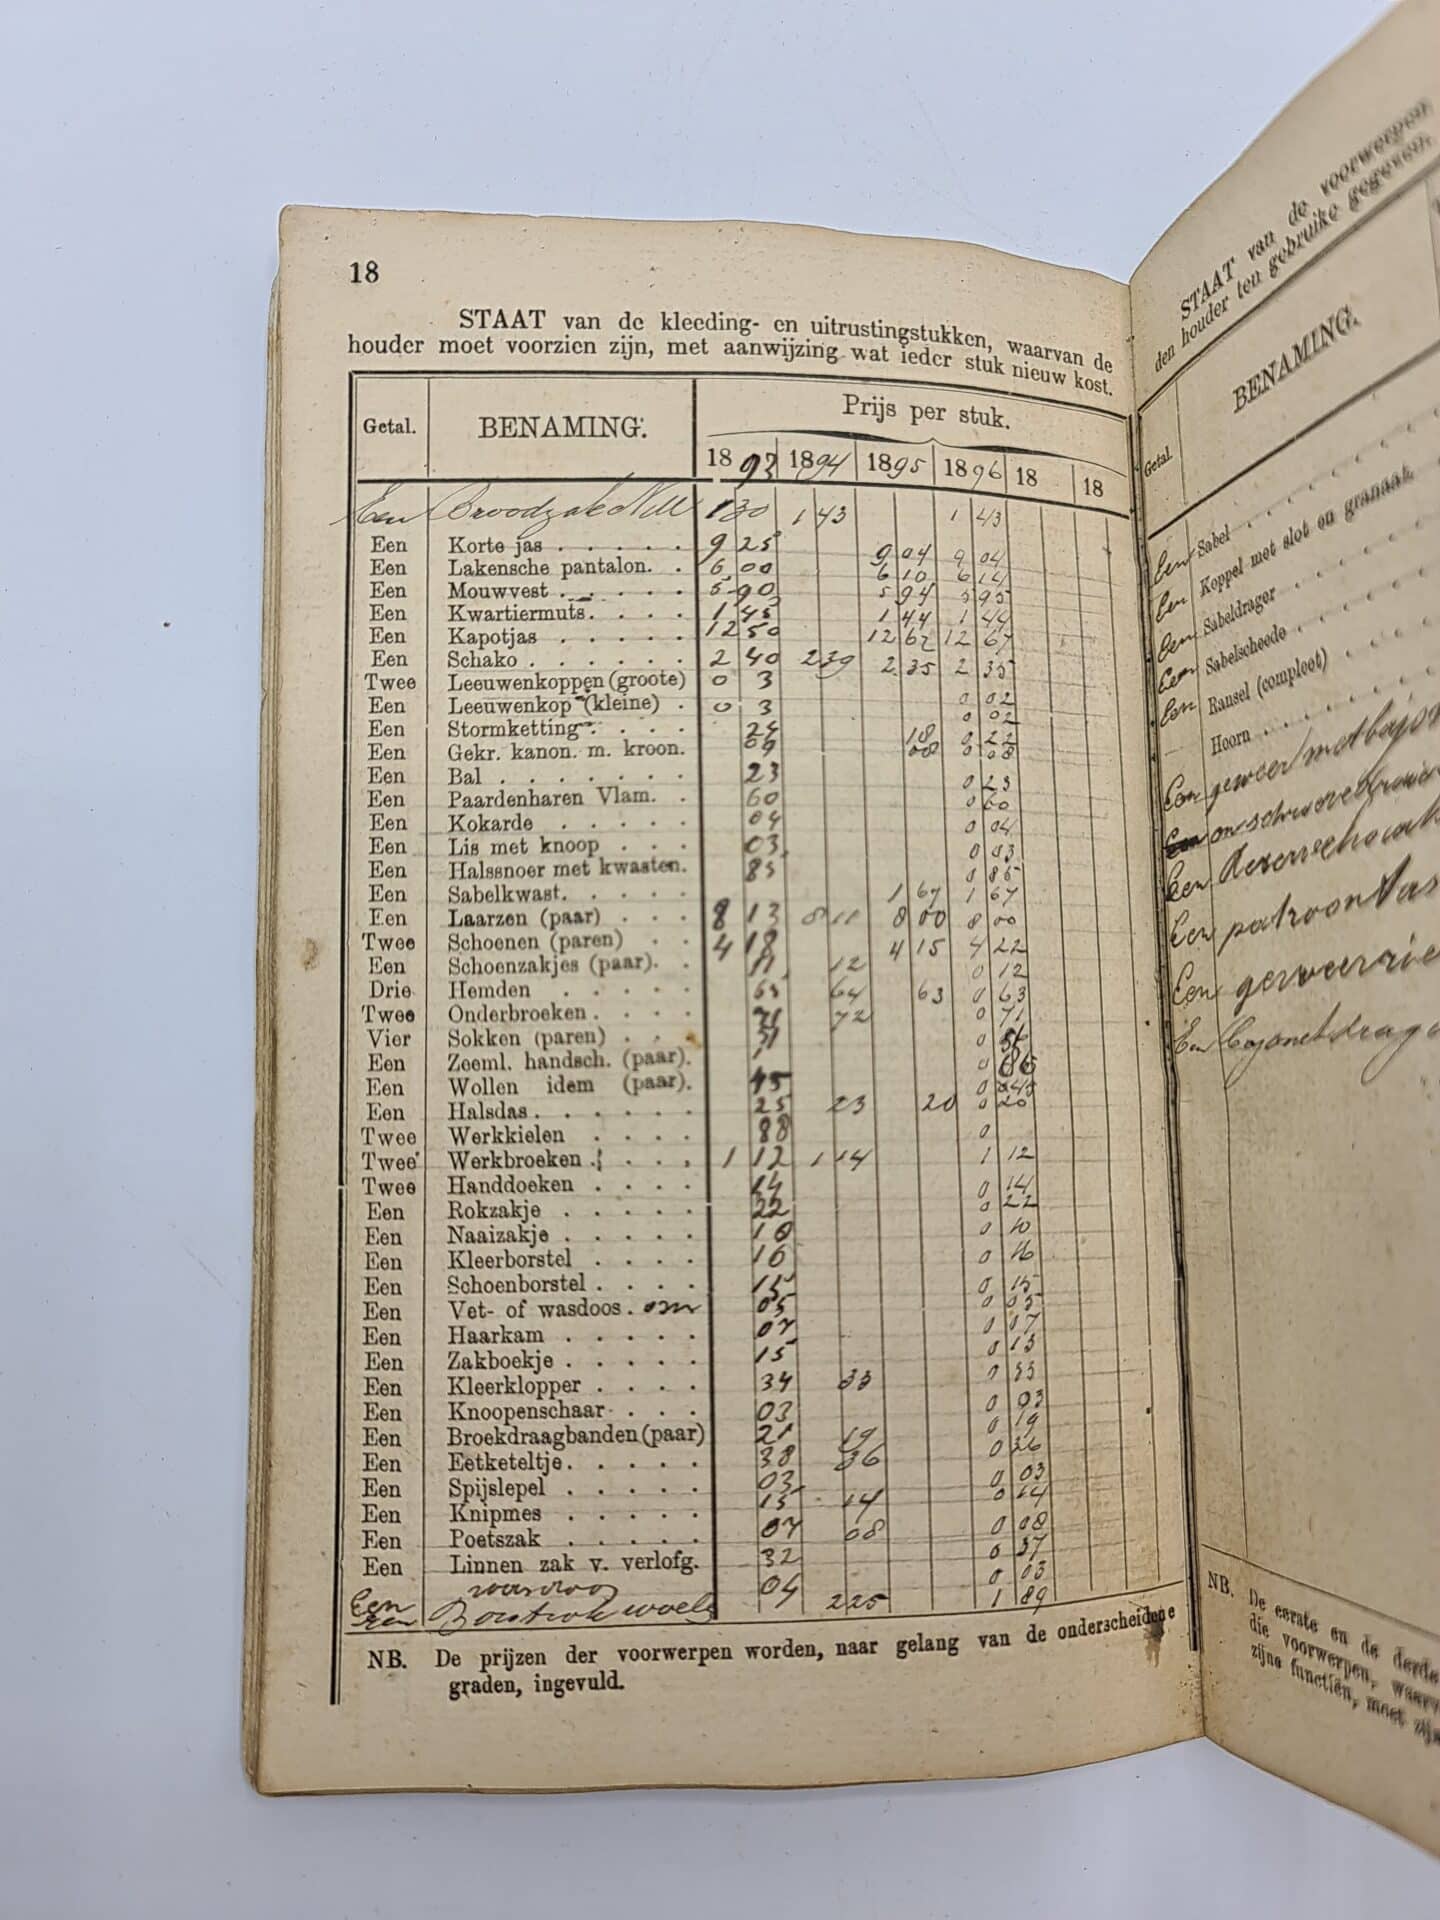 18
STAAT van de kleeding- en uitrustingstukken, waarvan de
houder moet voorzien zijn, met aanwijzing wat ieder stuk nieuw kost.
Getal. BENAMING. Prijs per stuk.
18 93 18 94 18 95 18 96 18 18
Een Broodzak 1 30 1 43 1 43
Een Korte jas . . . . . 9 25 9 04 9 04
Een Lakensche pantalon. . 6 00 6 10 6 14
Een Mouwvest . . . . . 5 90 5 94 5 95
Een Kwartiermuts . . . . 1 45 1 44 1 44
Een Kapotjas . . . . . 12 50 12 62 12 67
Een Schako . . . . . . 2 40 2 39 2 35 2 35
Twee Leeuwenkoppen (groote) 0 3 0 02
Een Leeuwenkop (kleine) . 0 3 0 02
Een Stormketting . . . . 24 18 0 22
Een Gekr. kanon. m. kroon. 09 08 0 08
Een Bal . . . . . . . 23 0 23
Een Paardenharen Vlam. . 60 0 60
Een Kokarde . . . . . 04 0 04
Een Lis met knoop . . . 03 0 03
Een Halssnoer met kwasten. 85 0 85
Een Sabelkwast. . . . . 1 67 1 67
Een Laarzen (paar) . . . 8 13 8 11 8 00 8 00
Twee Schoenen (paren) . . 4 18 4 15 4 22
Een Schoenzakjes (paar). . 11 12 0 12
Drie Hemden . . . . . 65 64 63 0 63
Twee Onderbroeken . . . . 71 72 0 71
Vier Sokken (paren) . . . 31 0
Een Zeeml. handsch. (paar). 1 0 86
Een Wollen idem (paar). 45 0 45
Een Halsdas . . . . . . 25 23 20 0 20
Twee Werkkielen . . . . 88 0
Twee Werkbroeken . . . . 1 12 1 14 1 12
Twee Handdoeken . . . . 14 0 14
Een Rokzakje . . . . . 22 0 22
Een Naaizakje . . . . . 10 0 10
Een Kleerborstel . . . . 16 0 16
Een Schoenborstel . . . . 15 0 15
Een Vet- of wasdoos . 05 0 05
Een Haarkam . . . . . 07 0 07
Een Zakboekje . . . . . 15 0 13
Een Kleerklopper . . . . 34 33 0 33
Een Knoopenschaar . . . 03 0 03
Een Broekdraagbanden (paar) 21 19 0 19
Een Eetketeltje . . . . . 38 36 0 36
Een Spijslepel . . . . . 03 0 03
Een Knipmes . . . . . 15 14 0 14
Een Poetszak . . . . . 07 08 0 08
Een Linnen zak v. verlofg. 32 0 37
Een 04 0 03
Een Borstrok 2 25 1 89
NB. De prijzen der voorwerpen worden, naar gelang van de onderscheidene
graden, ingevuld.
STAAT van de voorwerpen
den houder ten gebruike gegeven.
Getal. BENAMING.
Een Sabel . . . . .
Een Koppel met slot en granaat.
Een Sabeldrager . . . .
Een Sabelscheede . . . .
Een Ransel (compleet) . . .
Hoorn . . . . .
Een geweer met
Een
Een
Een
Een
Een
NB. De eerste en de derde
die voorwerpen,
zijne functiën, moet